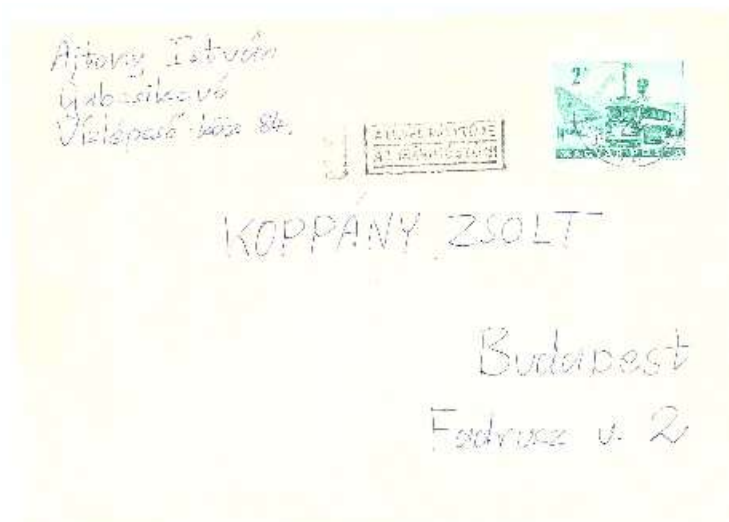 Ajtony István
Gabcsikovó
Vízlépcső köz 8k.
2
KOPPÁNY ZSOLT
Budapest
Fadrusz u. 2